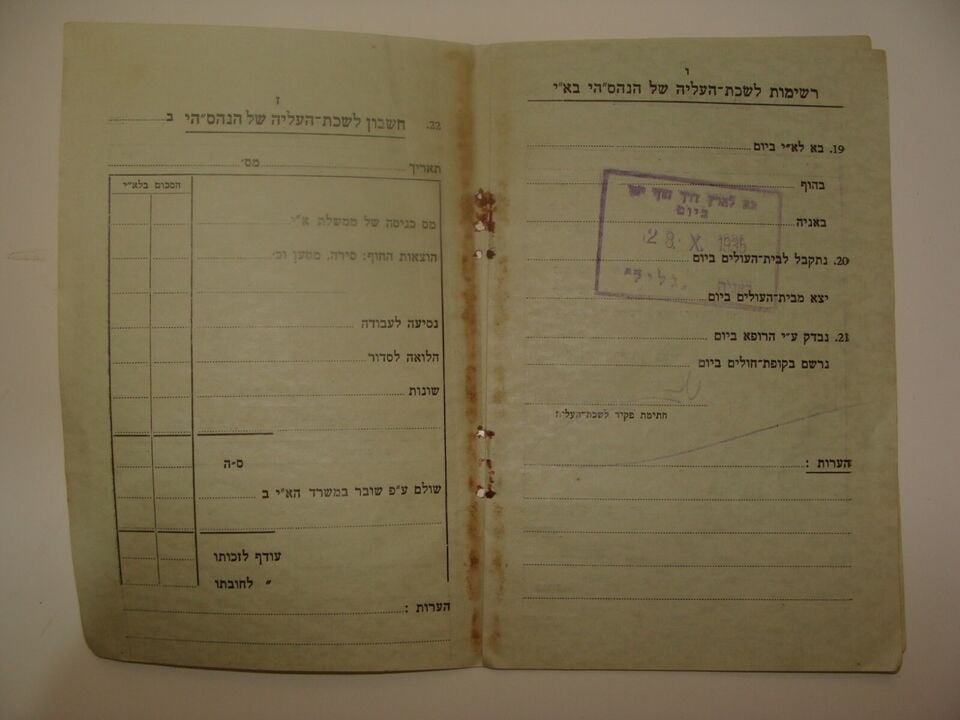 ו
רשימות לשכת-העליה של הנהס״הי בא״י
19. בא לא״י ביום
בהוף
באניה
20. נתקבל לבית-העולים ביום
יצא מבית-העולים ביום
21. נבדק ע״י הרופא ביום
נרשם בקופת-חולים ביום
חתימת פקיד לשכת-העליה
הערות :
בא לארץ דרך חוף יפו
ביום
28. X. 1935
באניה
ז
22. חשבון לשכת-העליה של הנהס״הי ב
תאריך מס׳
הסכום בלא״י
מס כניסה של ממשלת א״י
הוצאות החוף: סירה, מטען וכ׳
נסיעה לעבודה
הלואה לסדור
שונות
ס״ה
שולם ע״פ שובר במשרד הא״י ב
עודף לזכותו
״ לחובתו
הערות :